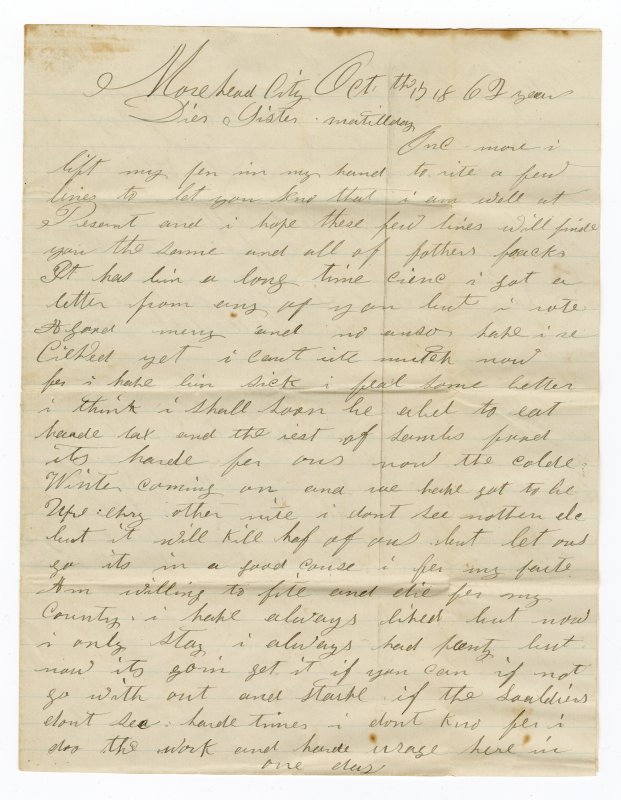 Morehead City Oct th 17 1862 years
Dier Sister matillday
Onc more i
lift my pen inn my hand to rite a few
lines to let you kno that i am well at
Presant and i hope these few lines will finde
you the same and all of fothers foacks
It has bin a long time cienc i got a
letter from any of you but i rote
A good meny and no anso have i re
Cieved yet i cant rite mutch now
for i have bin sick i feal some better
i think i shall soon be abel to eat
harde tax and the rest of sambs food
its harde for ous now the colde
Winter coming on and we have got to be
Upe evry other nite i dont see nothen els
but it will kill haf of ous but let ous
go its in a good couse i for my parte
Am willing to fite and die for my
County i have always lived but now
i only stay i always had plenty but
now its goin get it if you can if not
go with out and starve if the souldiers
dont see harde times i dont kno for i
doo the work and harde usage here in
one day